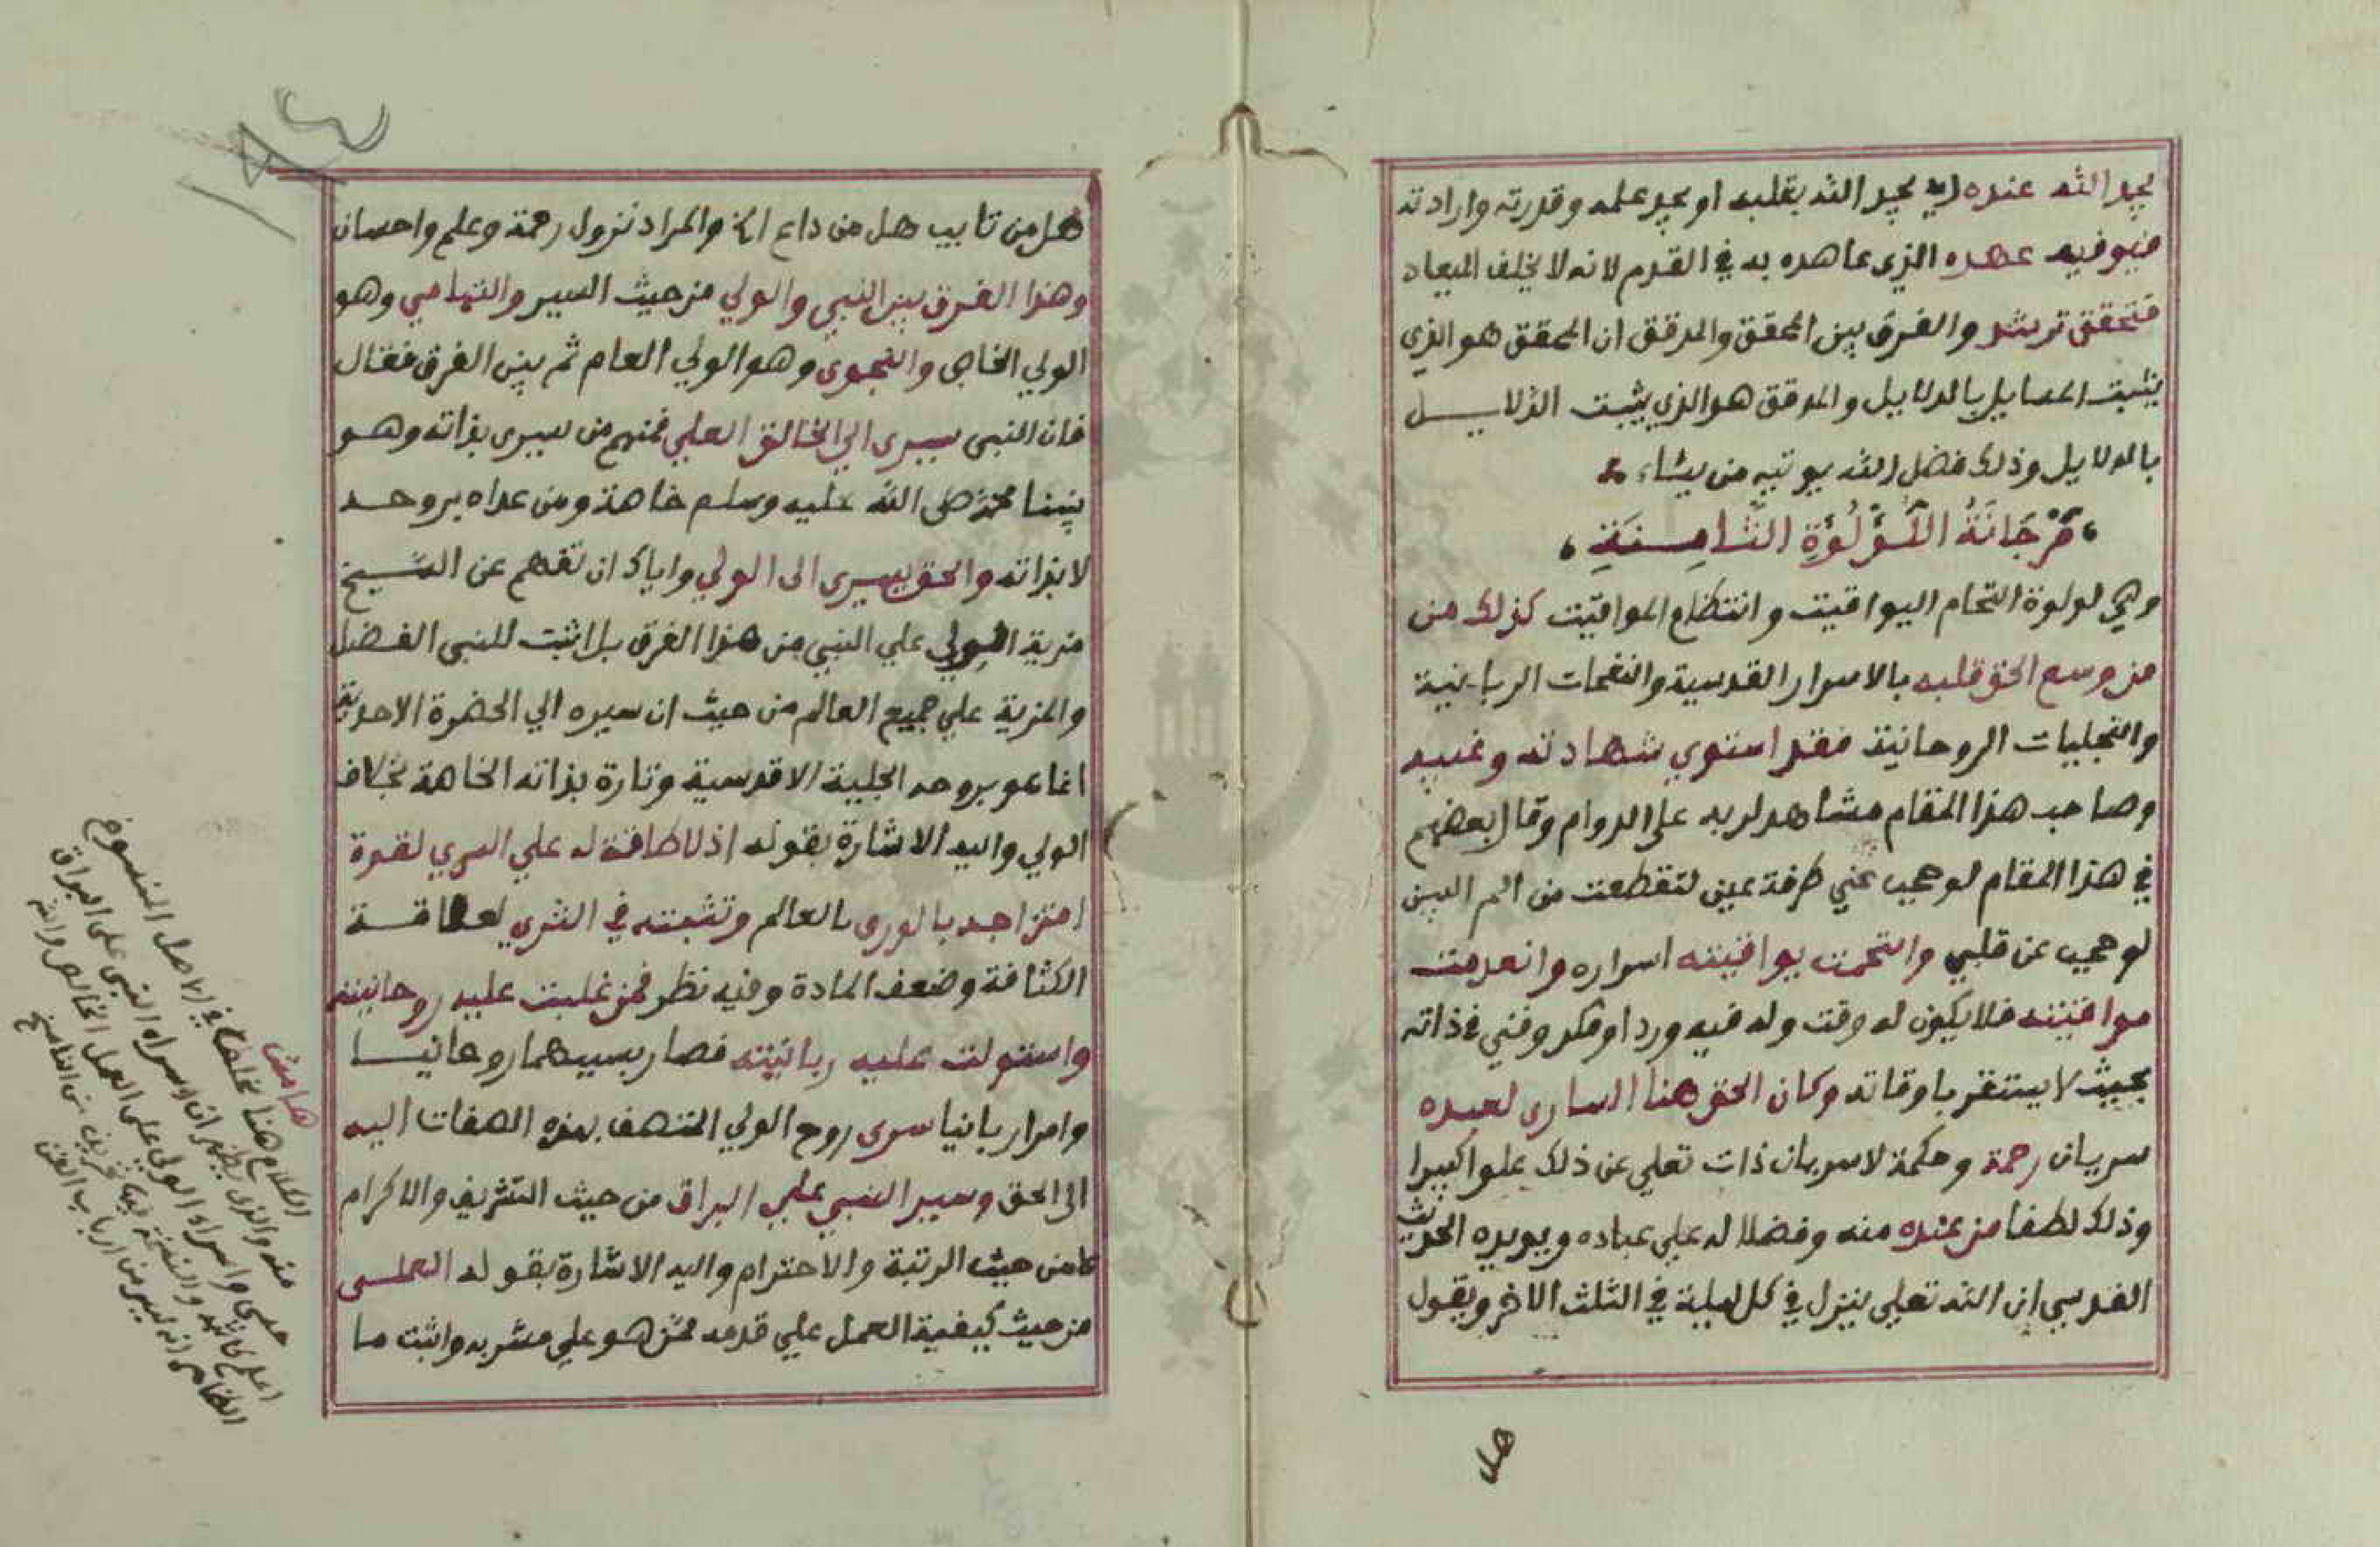 يجد الله عنده اي يجد الله بقلبه او يجد علمه وقدرته وارادته
فيوفيه عهده الذي عاهده به في القدم لانه لا يخلف الميعاد
فتحقق ترشد والفرق بين المحقق والمدقق ان المحقق هو الذي
يثبت المسايل بالدلايل والمدقق هو الذي يثبت الدلايل
بالدلايل وذلك فضل الله يوتيه من يشاء
مَرْجَانَةُ اللُّؤْلُؤَةِ الثَّامِنَةِ
وهي لولوة التحام اليواقيت وانتظام المواقيت كذلك من
من وسع الحق قلبه بالاسرار القدسية والنفحات الربانية
والتجليات الروحانية فقد استوي شهادته وغيبه
وصاحب هذا المقام مشاهد لربه على الدوام وقال بعضهم
في هذا المقام لو حجب عني طرفة عين لتقطعت من الم البين
لو حجب عن قلبي والتحمت يواقيته اسراره وانعدمت
مواقيته فلا يكون له وقت وله فيه ورد او فكر وفني في ذاته
بحيث لا يستقر باوقاته وكان الحق هنا الساري لعبده
سريان رحمة وحكمة لا سريان ذات تعلي عن ذلك علوا كبيرا
وذلك لطفا من عنده منه وفضلا له علي عباده ويويده الحديث
القدسي ان الله تعلي ينزل في كل ليلة في الثلث الاخر ويقول
هل
هل من تايب هل من داع الخ والمراد نزول رحمة وعلم واحسان
وهذا الفرق بين النبي والولي من حيث السير والتناجي وهو
الولي الخاص والنجوي وهو الولي العام ثم بين الفرق فقال
فان النبي يسري الي الخالق العلي فمنهم من يسري بذاته وهو
نبينا محمد صلى الله عليه وسلم خاصة ومن عداه بروحه
لا بذاته والحق يسري الى الولي واياك ان تفهم عن الشيخ
مزية الولي علي النبي من هذا الفرق بل اثبت للنبي الفضل
والمزية علي جميع العالم من حيث ان سيره الي الحضرة الاحدية
انما هو بروحه الجلية الاقدسية وتارة بذاته الخاصة بخلاف
الولي واليه الاشارة بقوله اذ لا طاقة له علي السري لقوة
امتزاجه بالوري بالعالم وتثبته في الثري لعلاقة
الكثافة وضعف المادة وفيه نظر فمن غلبت عليه روحانيته
واستولت عليه ربانيته فصار بسببهما روحانيا
وامرا ربانيا سري روح الولي المتصف بهذه الصفات اليه
الى الحق وسير النبي علي البراق من حيث التشريف والاكرام
لا من حيث الرتبة والاحترام واليه الاشارة بقوله العملي
من حيث كيفية العمل علي قدمه ممن هو علي مشربه واثبت ما
هامش
الكلام هنا يخلفا في الاصل المنسوخ
منه والذي يظهر ان اسراء النبي على البراق
حسي واسراء الولي على العمل الخالص والله